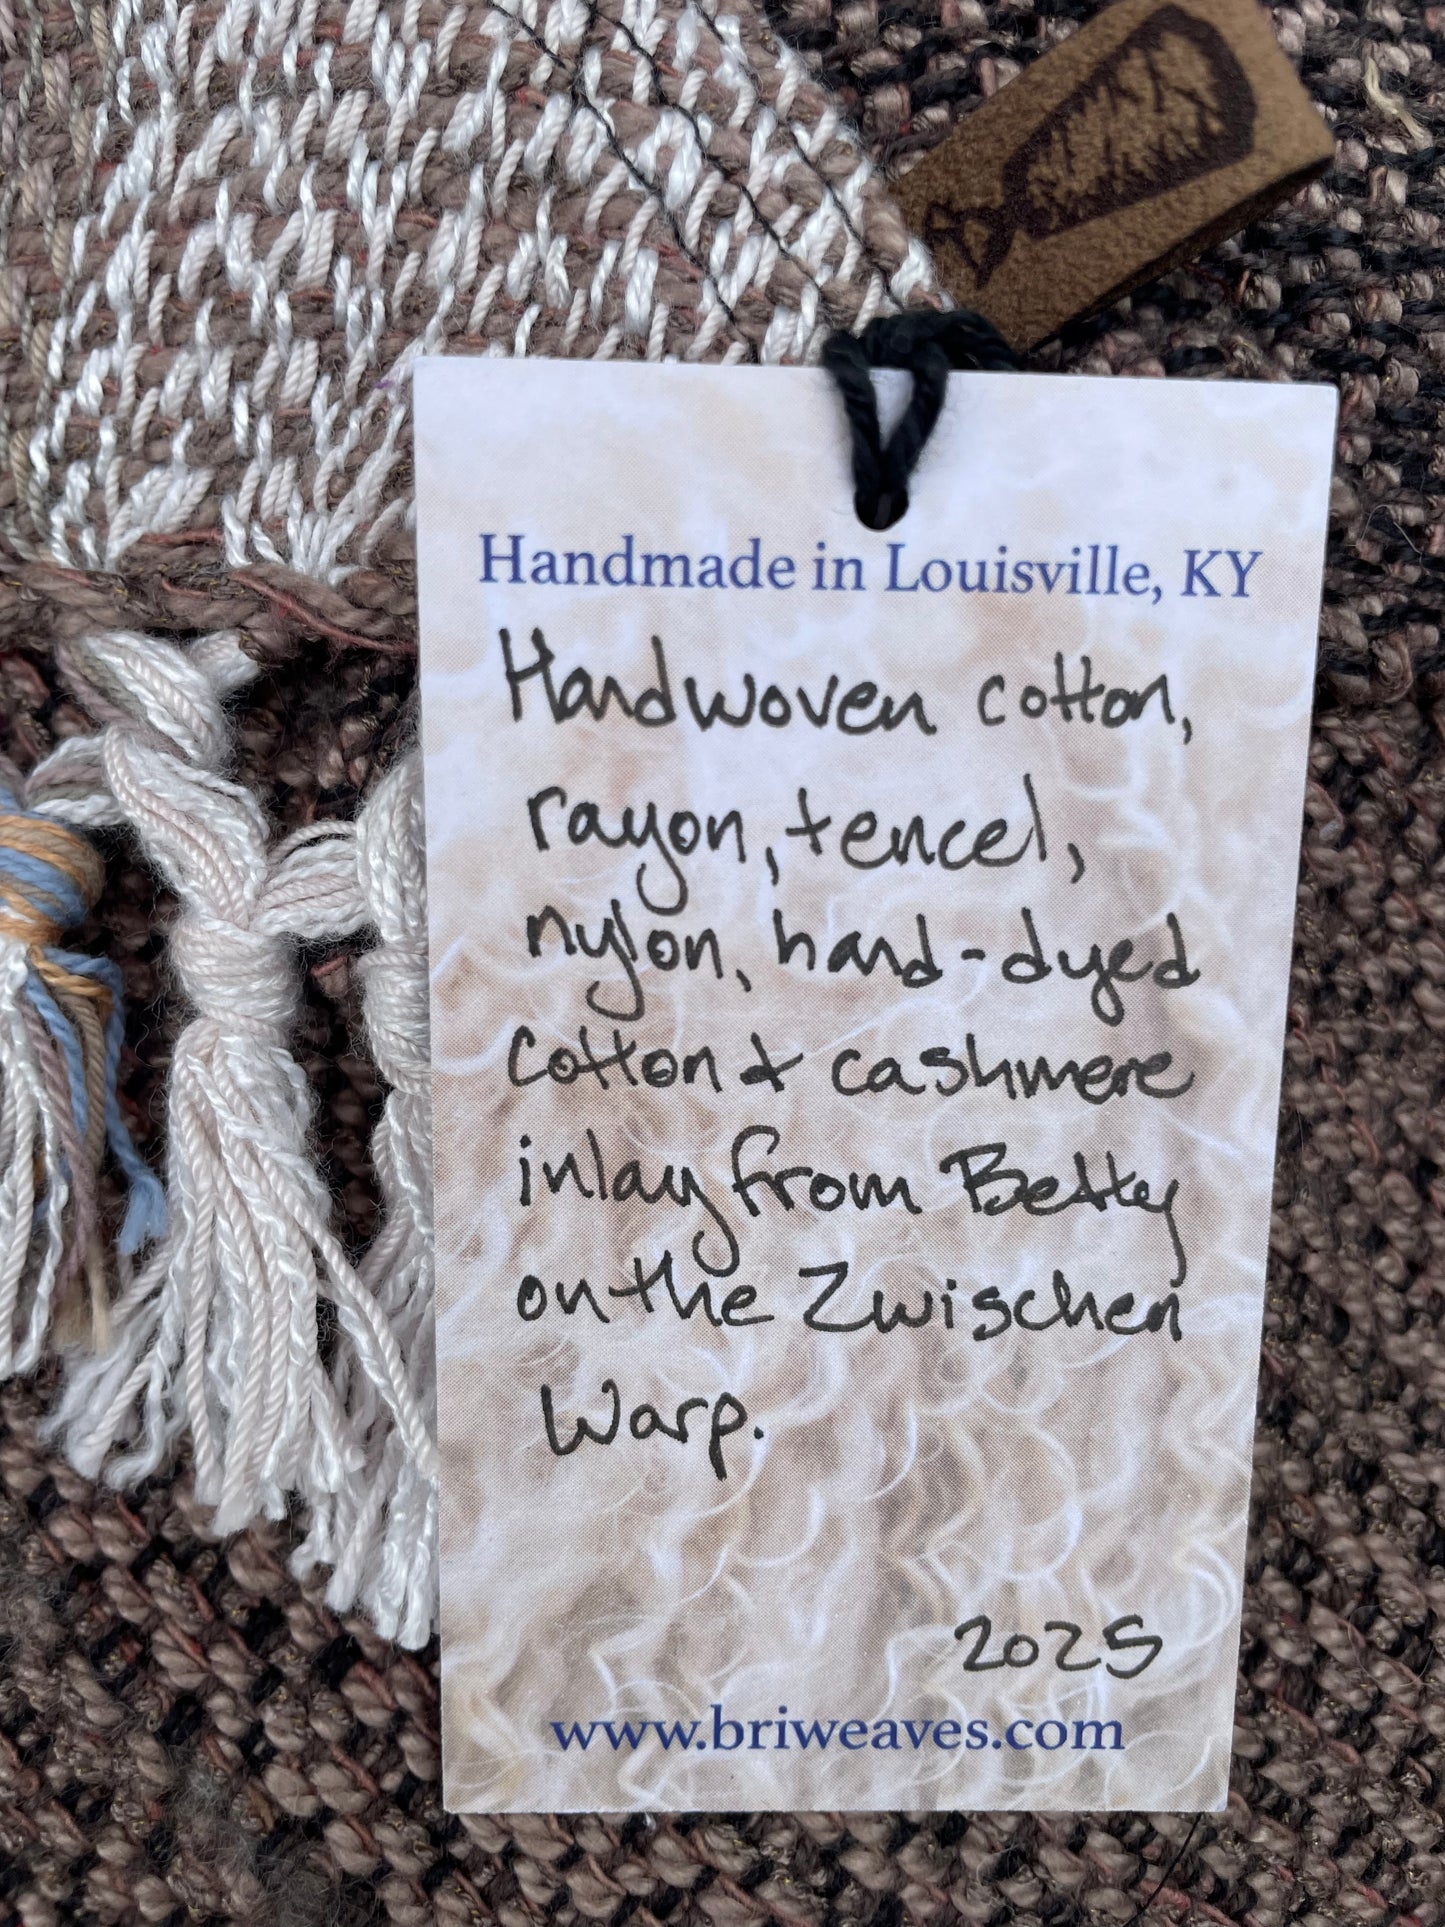 Handmade in Louisville, KY
Handwoven cotton,
rayon, tencel,
nylon, hand-dyed
cotton & cashmere
inlay from Betty
on the Zwischen
Warp.
2025
www.briweaves.com